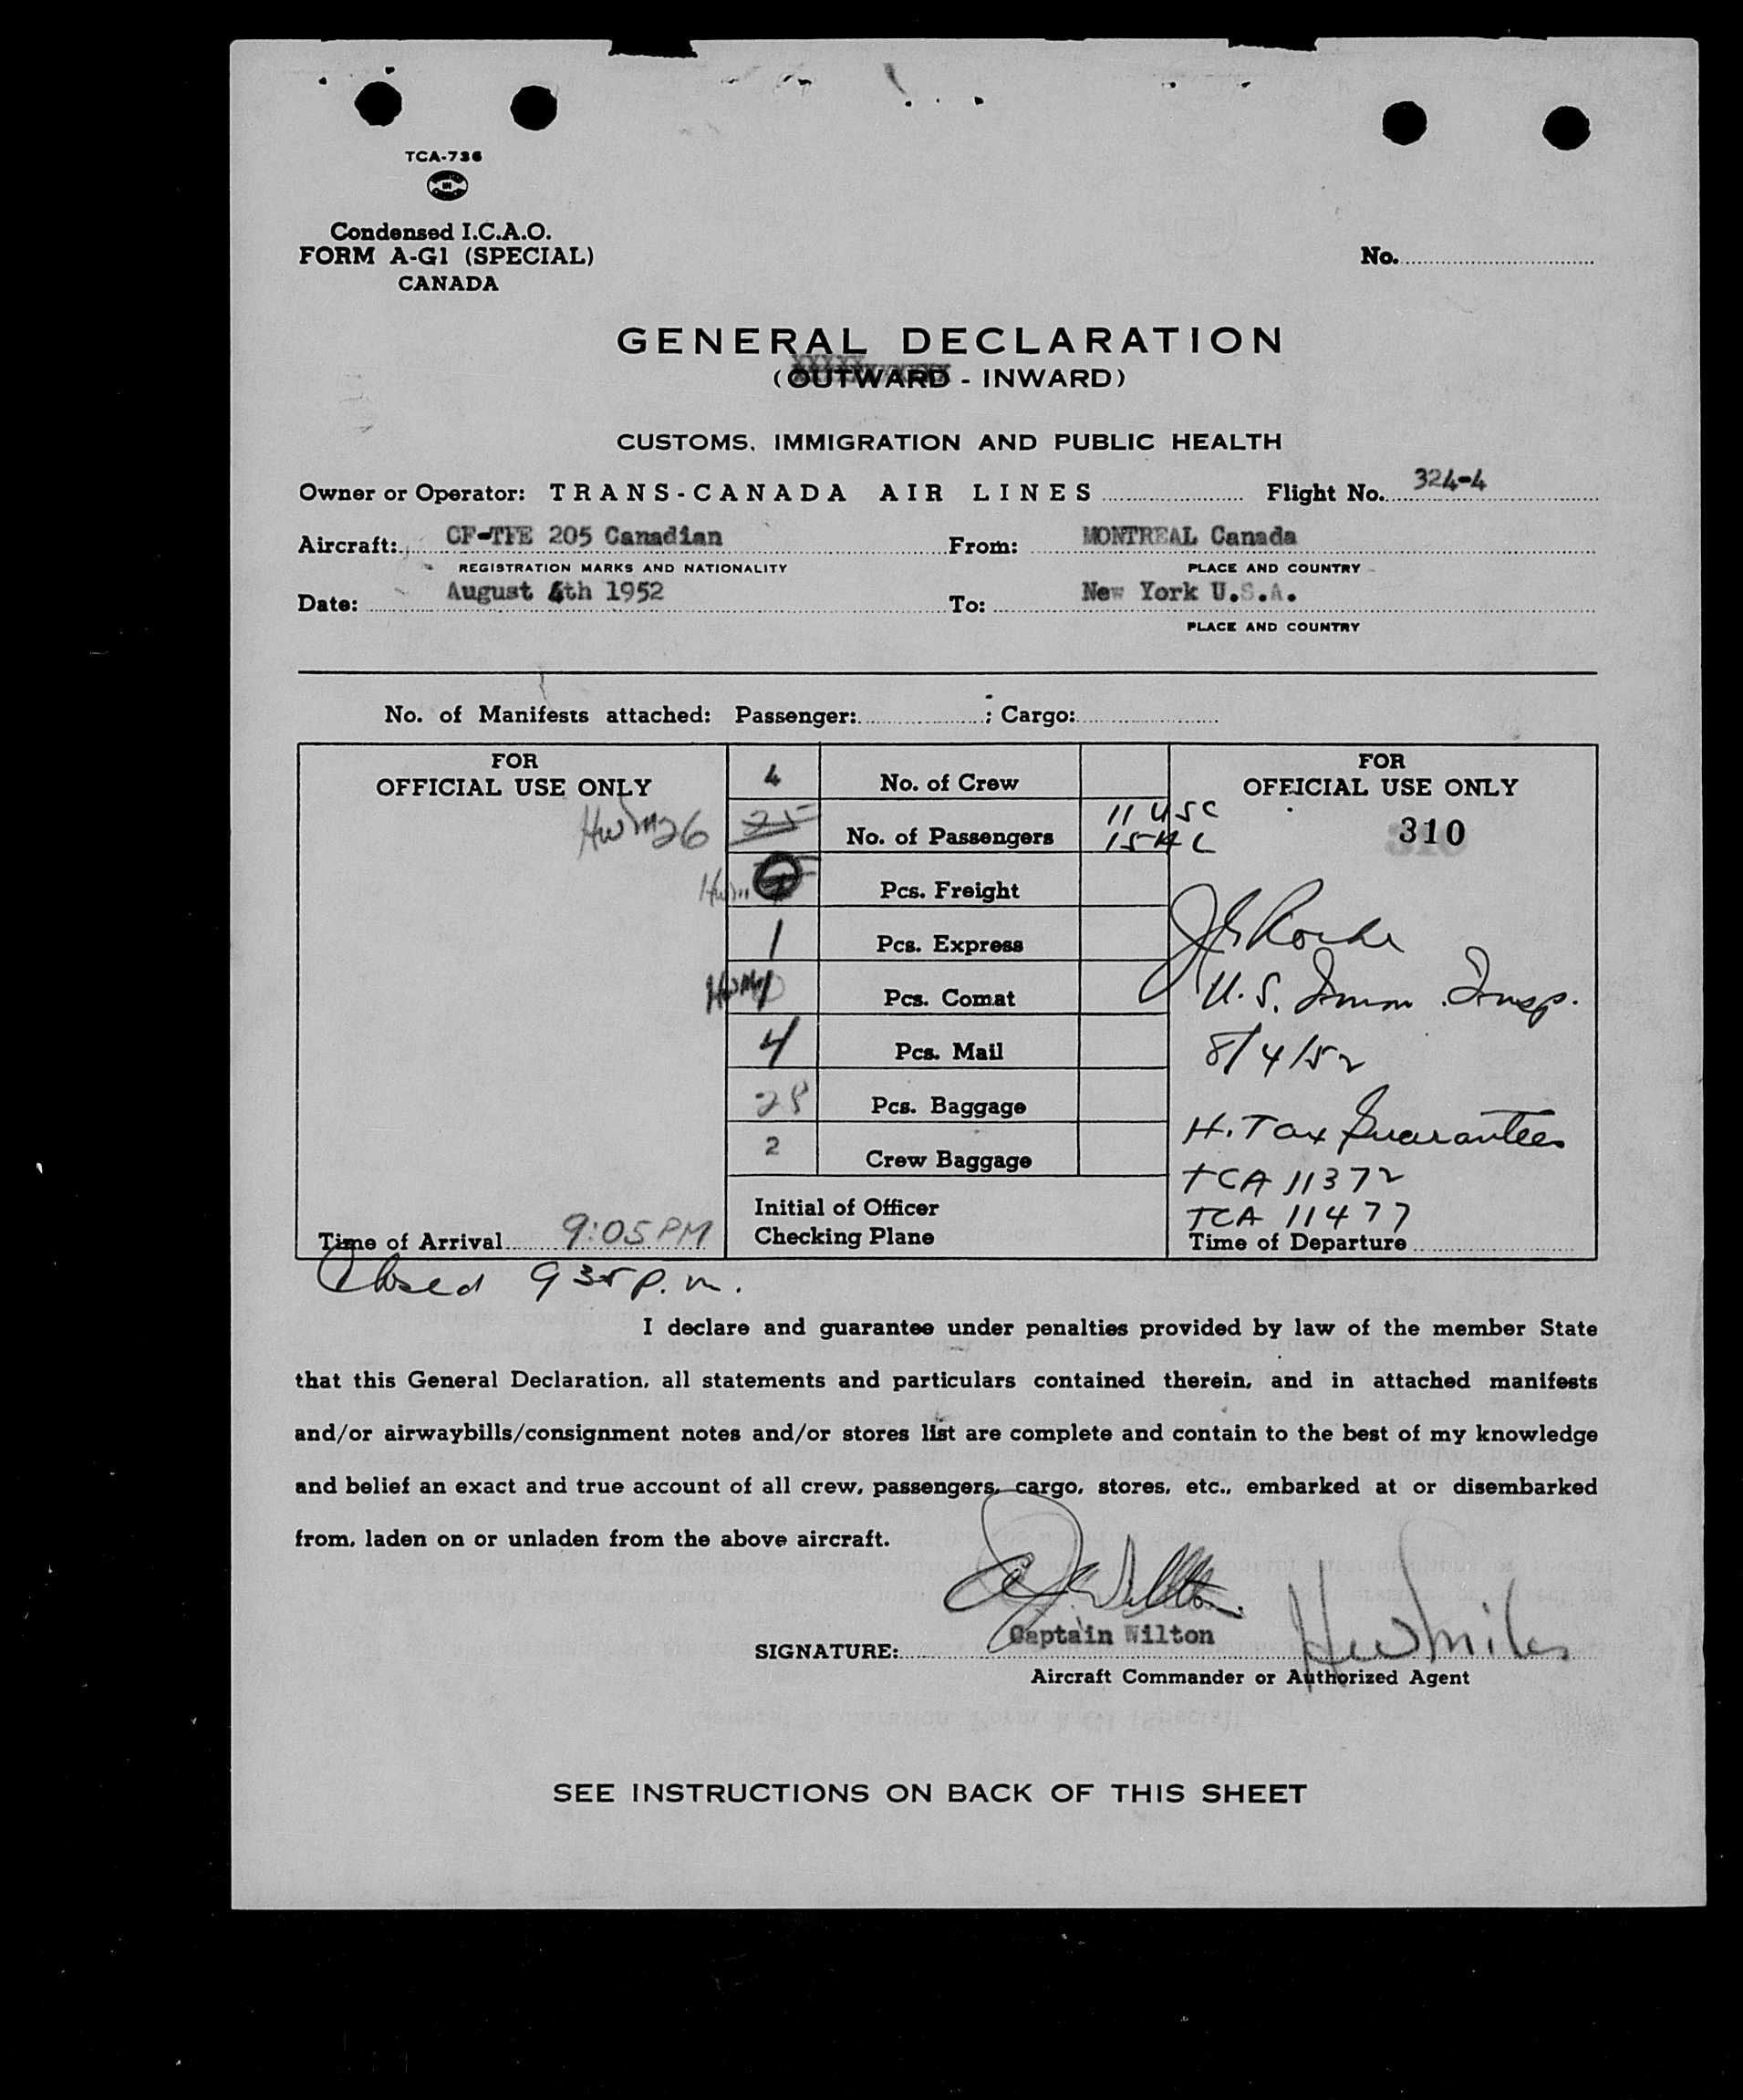 TCA-736
Condensed I.C.A.O.
FORM A-G1 (SPECIAL)
CANADA
No.
GENERAL DECLARATION
(OUTWARD - INWARD)
CUSTOMS, IMMIGRATION AND PUBLIC HEALTH
Owner or Operator: TRANS-CANADA AIR LINES Flight No. 324-4
Aircraft: CF-TFE 205 Canadian From: MONTREAL Canada
REGISTRATION MARKS AND NATIONALITY PLACE AND COUNTRY
Date: August 4th 1952 To: New York U.S.A.
PLACE AND COUNTRY
No. of Manifests attached: Passenger: ; Cargo:
FOR
OFFICIAL USE ONLY
4 No. of Crew
FOR
OFFICIAL USE ONLY
Hwm 26 25 No. of Passengers 11 USC
15 AL
310
Hwm Pcs. Freight
1 Pcs. Express
Hwm Pcs. Comat
4 Pcs. Mail
28 Pcs. Baggage
2 Crew Baggage
Initial of Officer
Checking Plane
U.S. Immn. Insp.
8/4/52
H. Tax Guarantees
TCA 11372
TCA 11477
Time of Arrival 9:05 PM
Time of Departure
Closed 935 p.m.
I declare and guarantee under penalties provided by law of the member State
that this General Declaration, all statements and particulars contained therein, and in attached manifests
and/or airwaybills/consignment notes and/or stores list are complete and contain to the best of my knowledge
and belief an exact and true account of all crew, passengers, cargo, stores, etc., embarked at or disembarked
from, laden on or unladen from the above aircraft.
SIGNATURE: Captain Wilton Hwmiles
Aircraft Commander or Authorized Agent
SEE INSTRUCTIONS ON BACK OF THIS SHEET